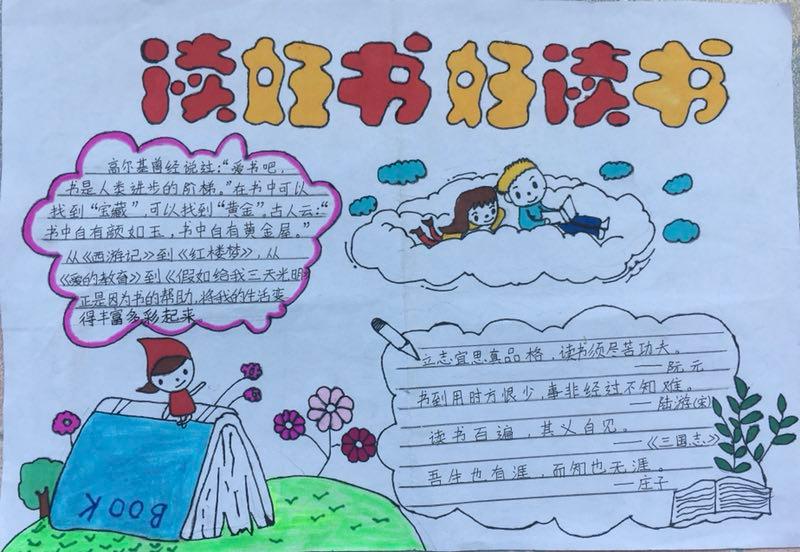 读好书好读书
高尔基曾经说过：“爱书吧，
书是人类进步的阶梯。”在书中可以
找到“宝藏”，可以找到“黄金”。古人云：“
书中自有颜如玉，书中自有黄金屋。”
从《西游记》到《红楼梦》，从
《爱的教育》到《假如给我三天光明》
正是因为书的帮助，将我的生活变
得丰富多彩起来。
立志宜思真品格，读书须尽苦功夫。
——阮元
书到用时方恨少，事非经过不知难。
——陆游(宋)
读书百遍，其义自见。
——《三国志》
吾生也有涯，而知也无涯。
——庄子
BOOK